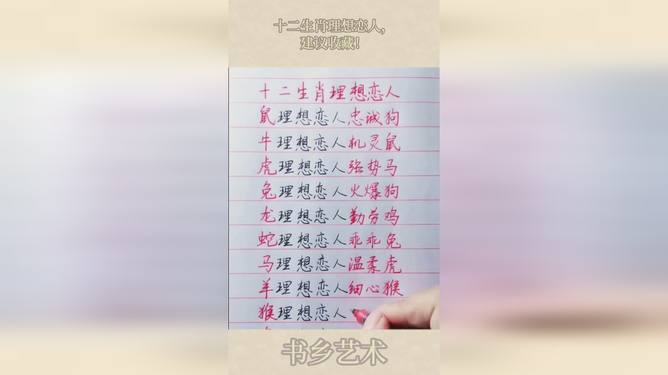 十二生肖理想恋人,
建议收藏!
十二生肖理想恋人
鼠理想恋人忠诚狗
牛理想恋人机灵鼠
虎理想恋人强势马
兔理想恋人火爆狗
龙理想恋人勤劳鸡
蛇理想恋人乖乖兔
马理想恋人温柔虎
羊理想恋人细心猴
猴理想恋人
书乡艺术